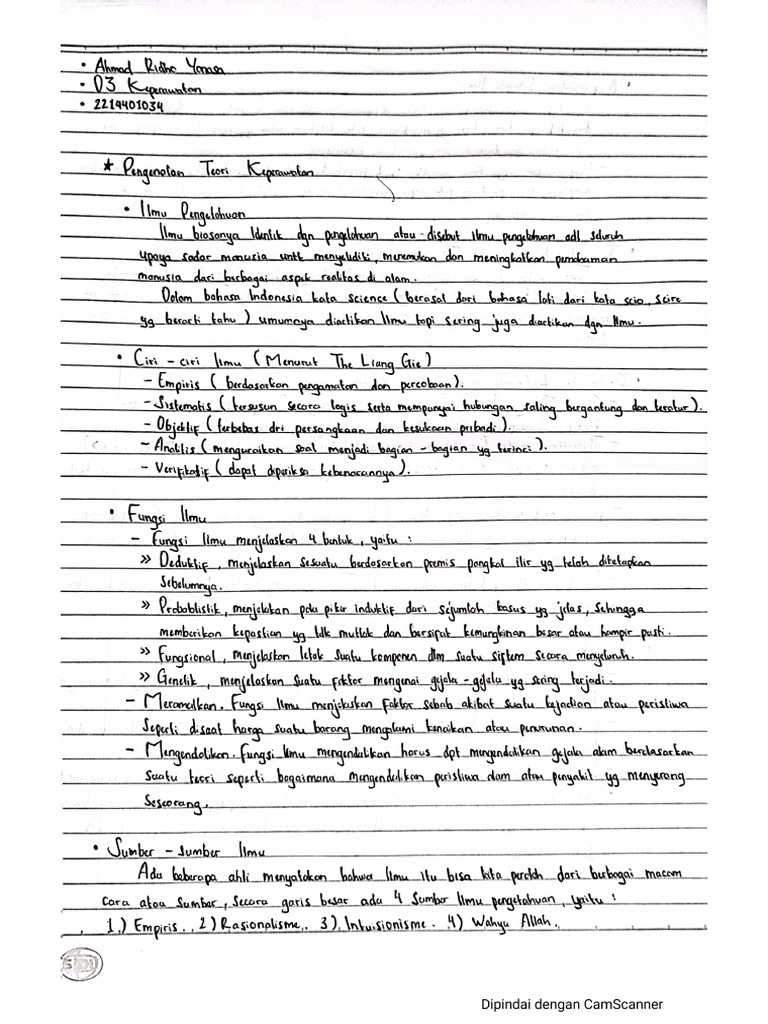 • Ahmad Ridho Yonasa
• D3 Keperawatan
• 2214401034
* Pengenalan Teori Keperawatan
• Ilmu Pengetahuan
Ilmu biasanya Identik dgn pengetahuan atau disebut Ilmu pengetahuan adl seluruh
upaya sadar manusia untk menyelidiki, menemukan dan meningkatkan pemahaman
manusia dari berbagai aspek realitas di alam.
Dalam bahasa Indonesia kata science ( berasal dari bahasa lati dari kata scio, scire
yg berarti tahu ) umumnya diartikan Ilmu tapi sering juga diartikan dgn Ilmu.
• Ciri - ciri Ilmu ( Menurut The Liang Gie )
- Empiris ( berdasarkan pengamatan dan percobaan ).
- Sistematis ( tersusun secara logis serta mempunyai hubungan saling bergantung dan teratur ).
- Objektif ( terbebas dri persangkaan dan kesukaan pribadi ).
- Analitis ( menguraikan soal menjadi bagian - bagian yg terinci ).
- Verifikatif ( dapat diperiksa kebenarannya ).
• Fungsi Ilmu
- Fungsi Ilmu menjelaskan 4 bentuk, yaitu :
» Deduktif, menjelaskan sesuatu berdasarkan premis pangkal ilir yg telah ditetapkan
Sebelumnya.
» Probablistik, menjelakan pola pikir induktif dari sejumlah kasus yg jelas, Sehingga
memberikan kepastian yg tdk mutlak dan bersifat kemungkinan besar atau hampir pasti.
» Fungsional, menjelaskan letak suatu komponen dlm suatu sistem secara menyeluruh.
» Genetik, menjelaskan suatu faktor mengenai gejala - gejala yg sering terjadi.
- Meramalkan. Fungsi Ilmu menjelaskan faktor sebab akibat suatu kejadian atau peristiwa
Seperti disaat harga suatu barang mengalami kenaikan atau penurunan.
- Mengendalikan. Fungsi Ilmu mengendalikan harus dpt mengendalikan gejala alam berdasarkan
Suatu teori seperti bagaimana mengendalikan peristiwa alam atau penyakit yg menyerang
Seseorang.
• Sumber - sumber Ilmu
Ada beberapa ahli menyatakan bahwa Ilmu itu bisa kita peroleh dari berbagai macam
Cara atau Sumber, Secara garis besar ada 4 Sumber Ilmu pengetahuan, yaitu :
1.) Empiris. 2) Rasionalisme. 3). Intuisionisme. 4) Wahyu Allah.
Dipindai dengan CamScanner